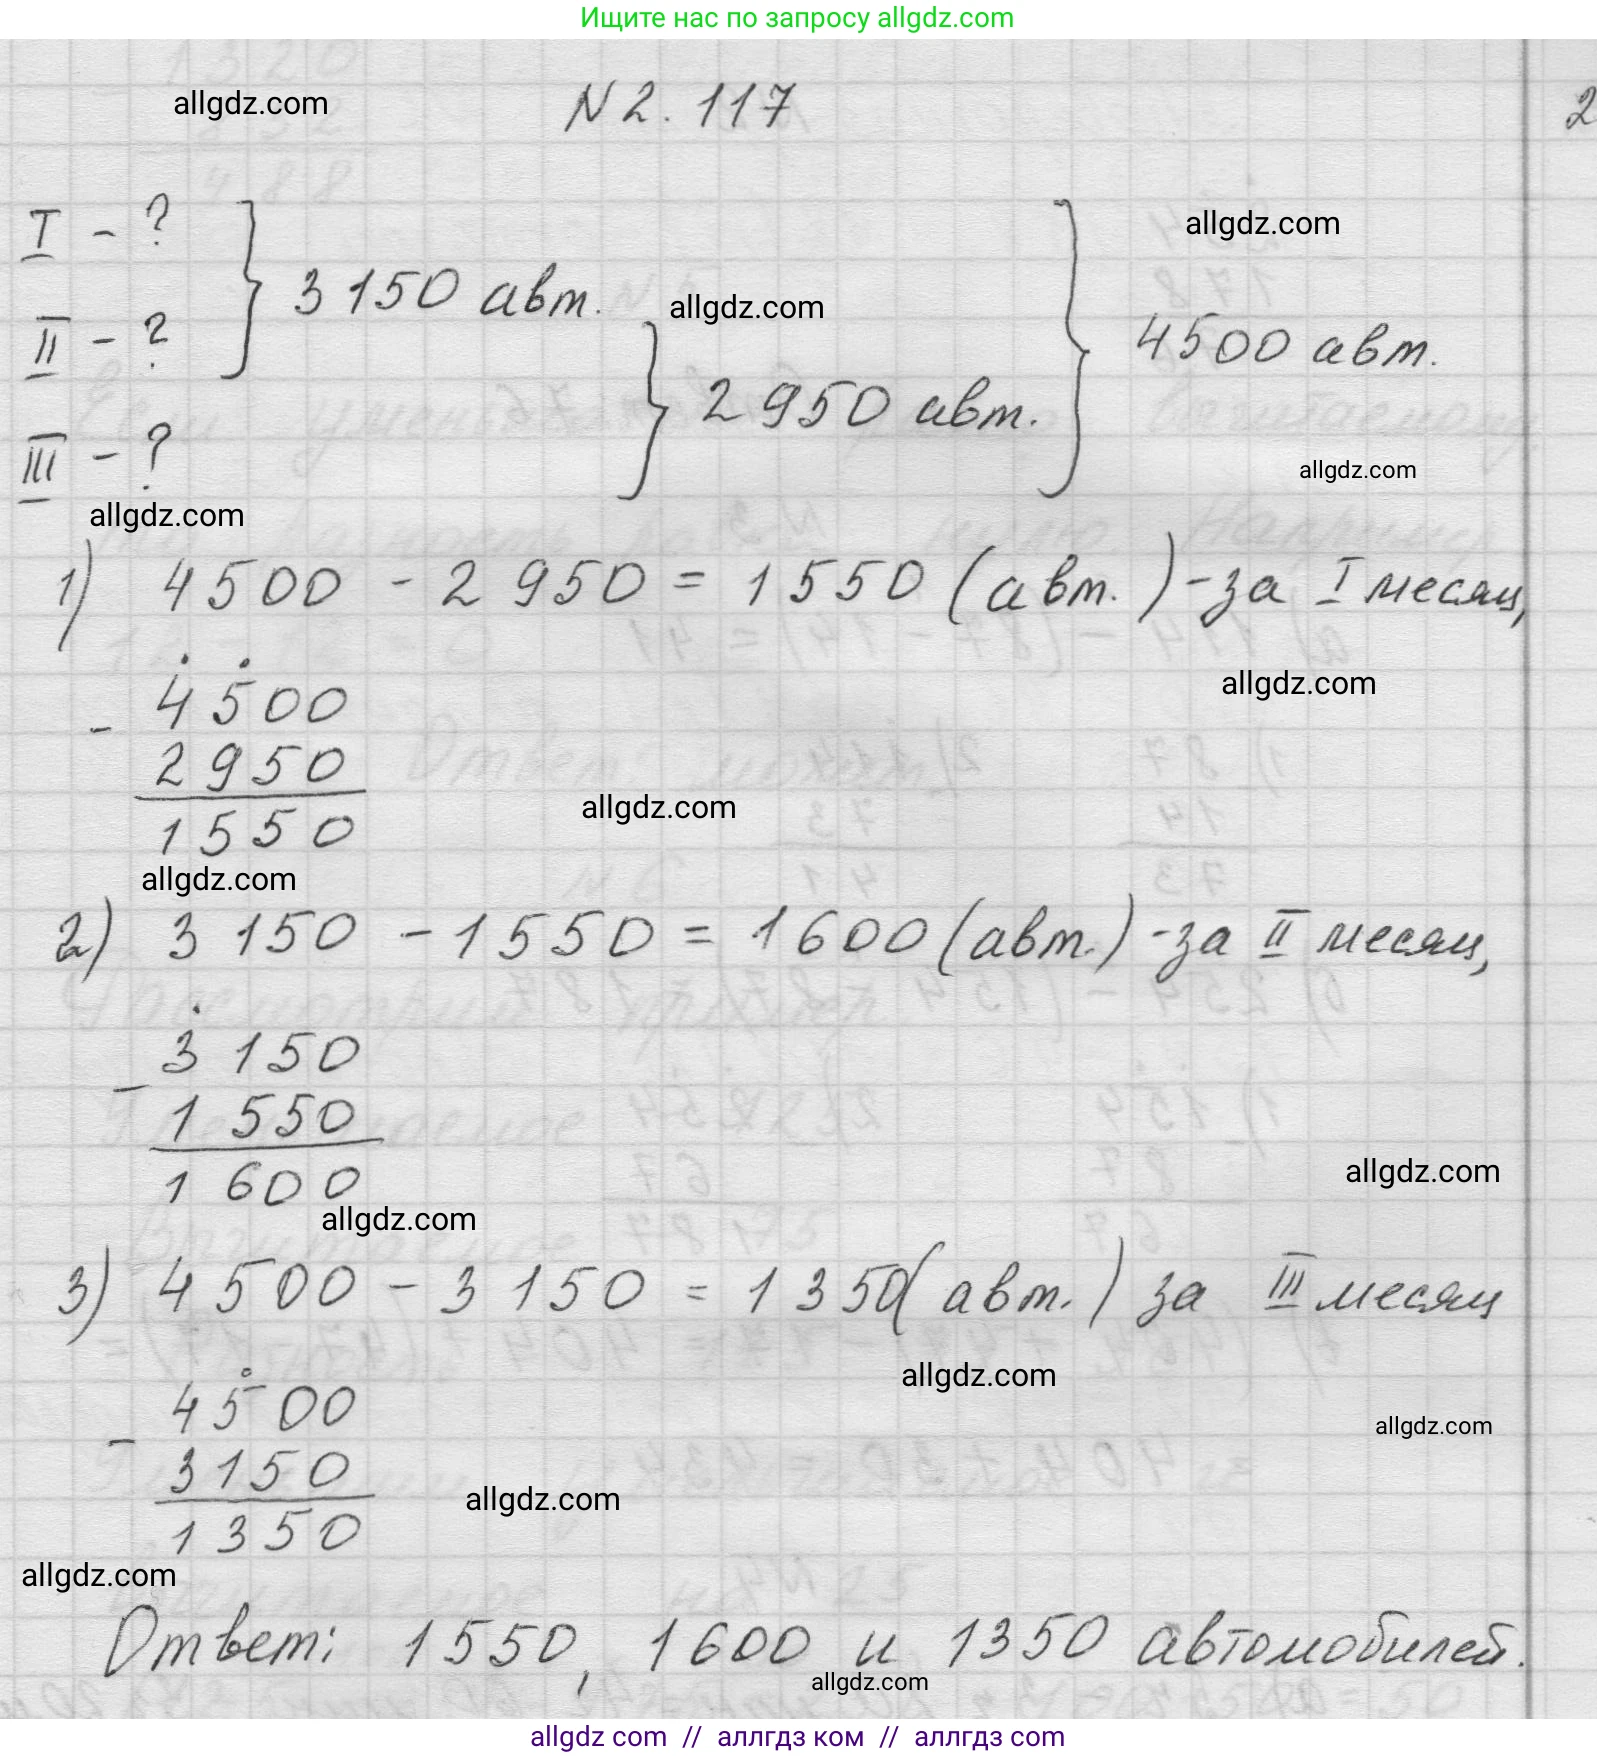 Ищите нас по запросу allgdz.com
allgdz.com
N 2. 117
2
I - ?
allgdz.com
3150 авт.
allgdz.com
II - ?
4500 авт.
2950 авт.
III - ?
allgdz.com
allgdz.com
1) 4500 - 2950 = 1550 (авт.) - за I месяц,
allgdz.com
- 4500
2950
allgdz.com
1550
allgdz.com
2) 3150 - 1550 = 1600 (авт.) - за II месяц,
- 3150
1550
allgdz.com
1600
allgdz.com
3) 4500 - 3150 = 1350 (авт.) за III месяц
allgdz.com
- 4500
allgdz.com
3150
allgdz.com
1350
allgdz.com
Ответ: 1550, 1600 и 1350 автомобилей.
allgdz.com
allgdz com // аллгдз ком // аллгдз com